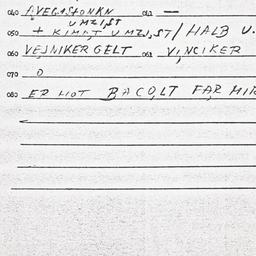 040 AVEGASTONKN 042 —
UMZI,ST
050 + KIMAT UMZI,ST / HALB U.
060 VEJNIKERGELT 061 VINCIKER
070 0
080 ER HOT BACOLT FAR MIR